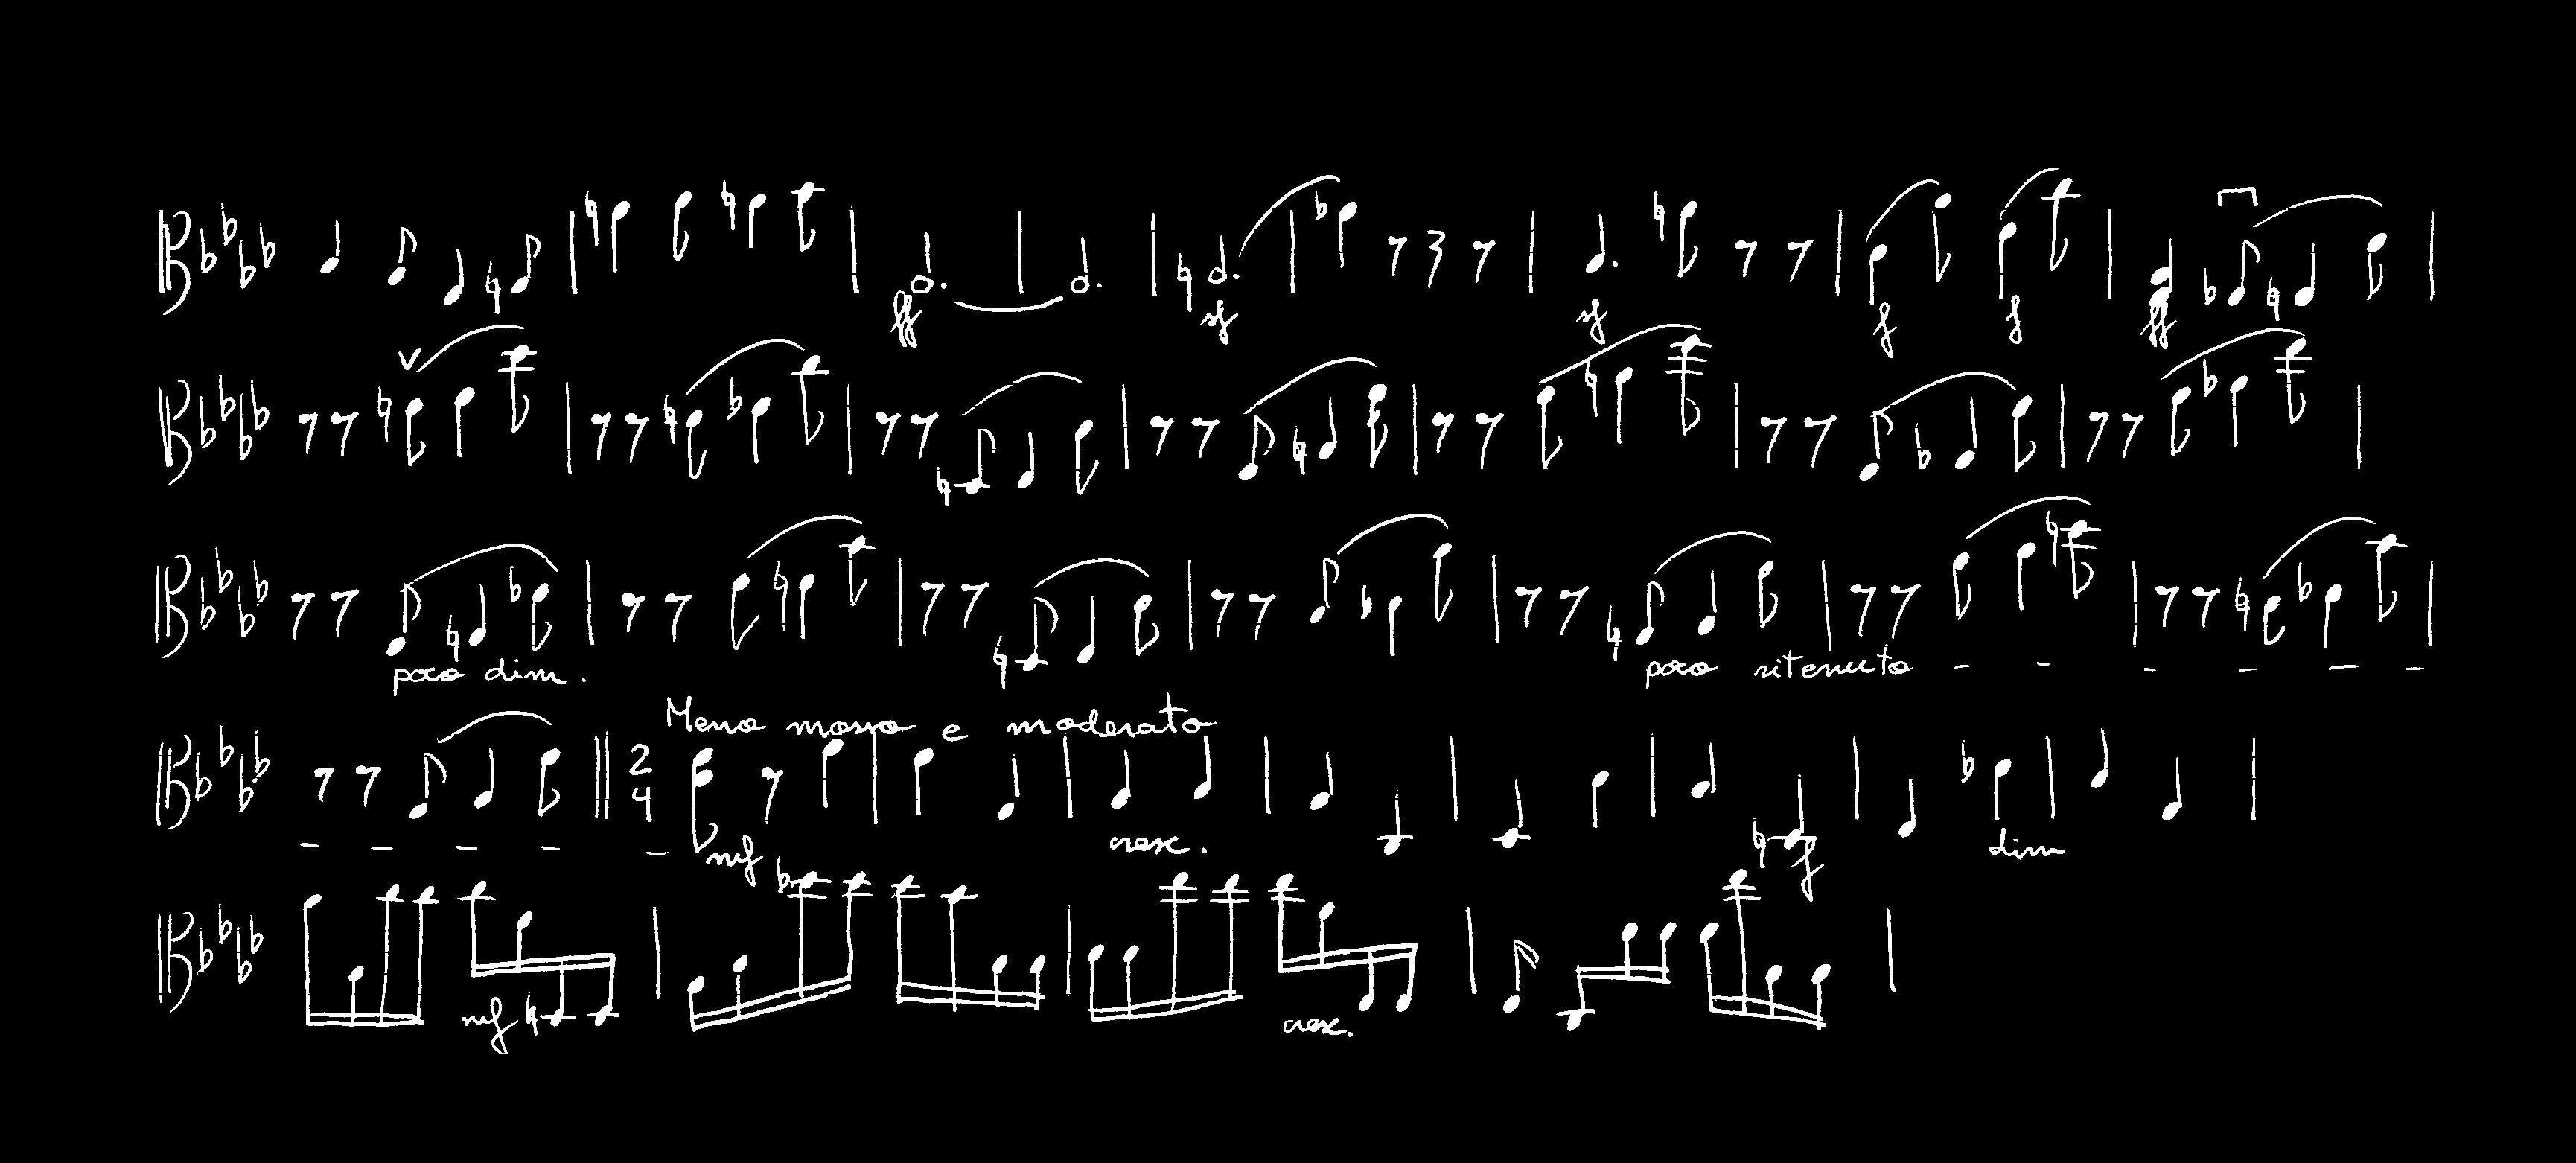 ff sf sf f f ff
poco dim. poco ritenuto
Meno mosso e moderato
2
4
mf cresc. f dim
mf cresc.